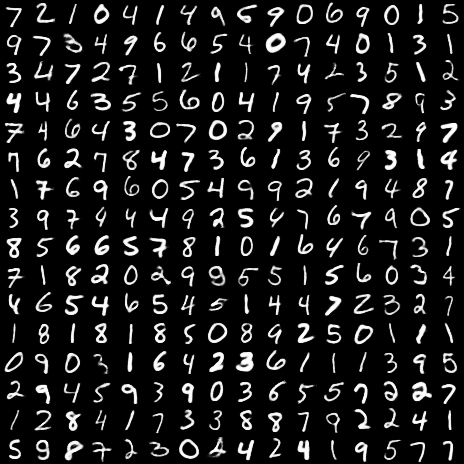 7 2 1 0 4 1 4 9 6 9 0 6 9 0 1 5
9 7 3 4 9 6 6 5 4 0 7 4 0 1 3 1
3 4 7 2 7 1 2 1 1 7 4 2 3 5 1 2
4 4 6 3 5 5 6 0 4 1 9 5 7 8 9 3
7 4 6 4 3 0 7 0 2 9 1 7 3 2 9 7
7 6 2 7 8 4 7 3 6 1 3 6 9 3 1 4
1 7 6 9 6 0 5 4 9 9 2 1 9 4 8 7
3 9 7 4 4 4 9 2 5 4 7 6 7 9 0 5
8 5 6 6 5 7 8 1 0 1 6 4 6 7 3 1
7 1 8 2 0 2 9 9 5 5 1 5 6 0 3 4
4 6 5 4 6 5 4 5 1 4 4 7 2 3 2 7
1 8 1 8 1 8 5 0 8 9 2 5 0 1 1 1
0 9 0 3 1 6 4 2 3 6 1 1 1 3 9 5
2 9 4 5 9 3 9 0 3 6 5 5 7 2 2 7
1 2 8 4 1 7 3 3 8 8 7 9 2 2 4 1
5 9 8 7 2 3 0 4 4 2 4 1 9 5 7 7